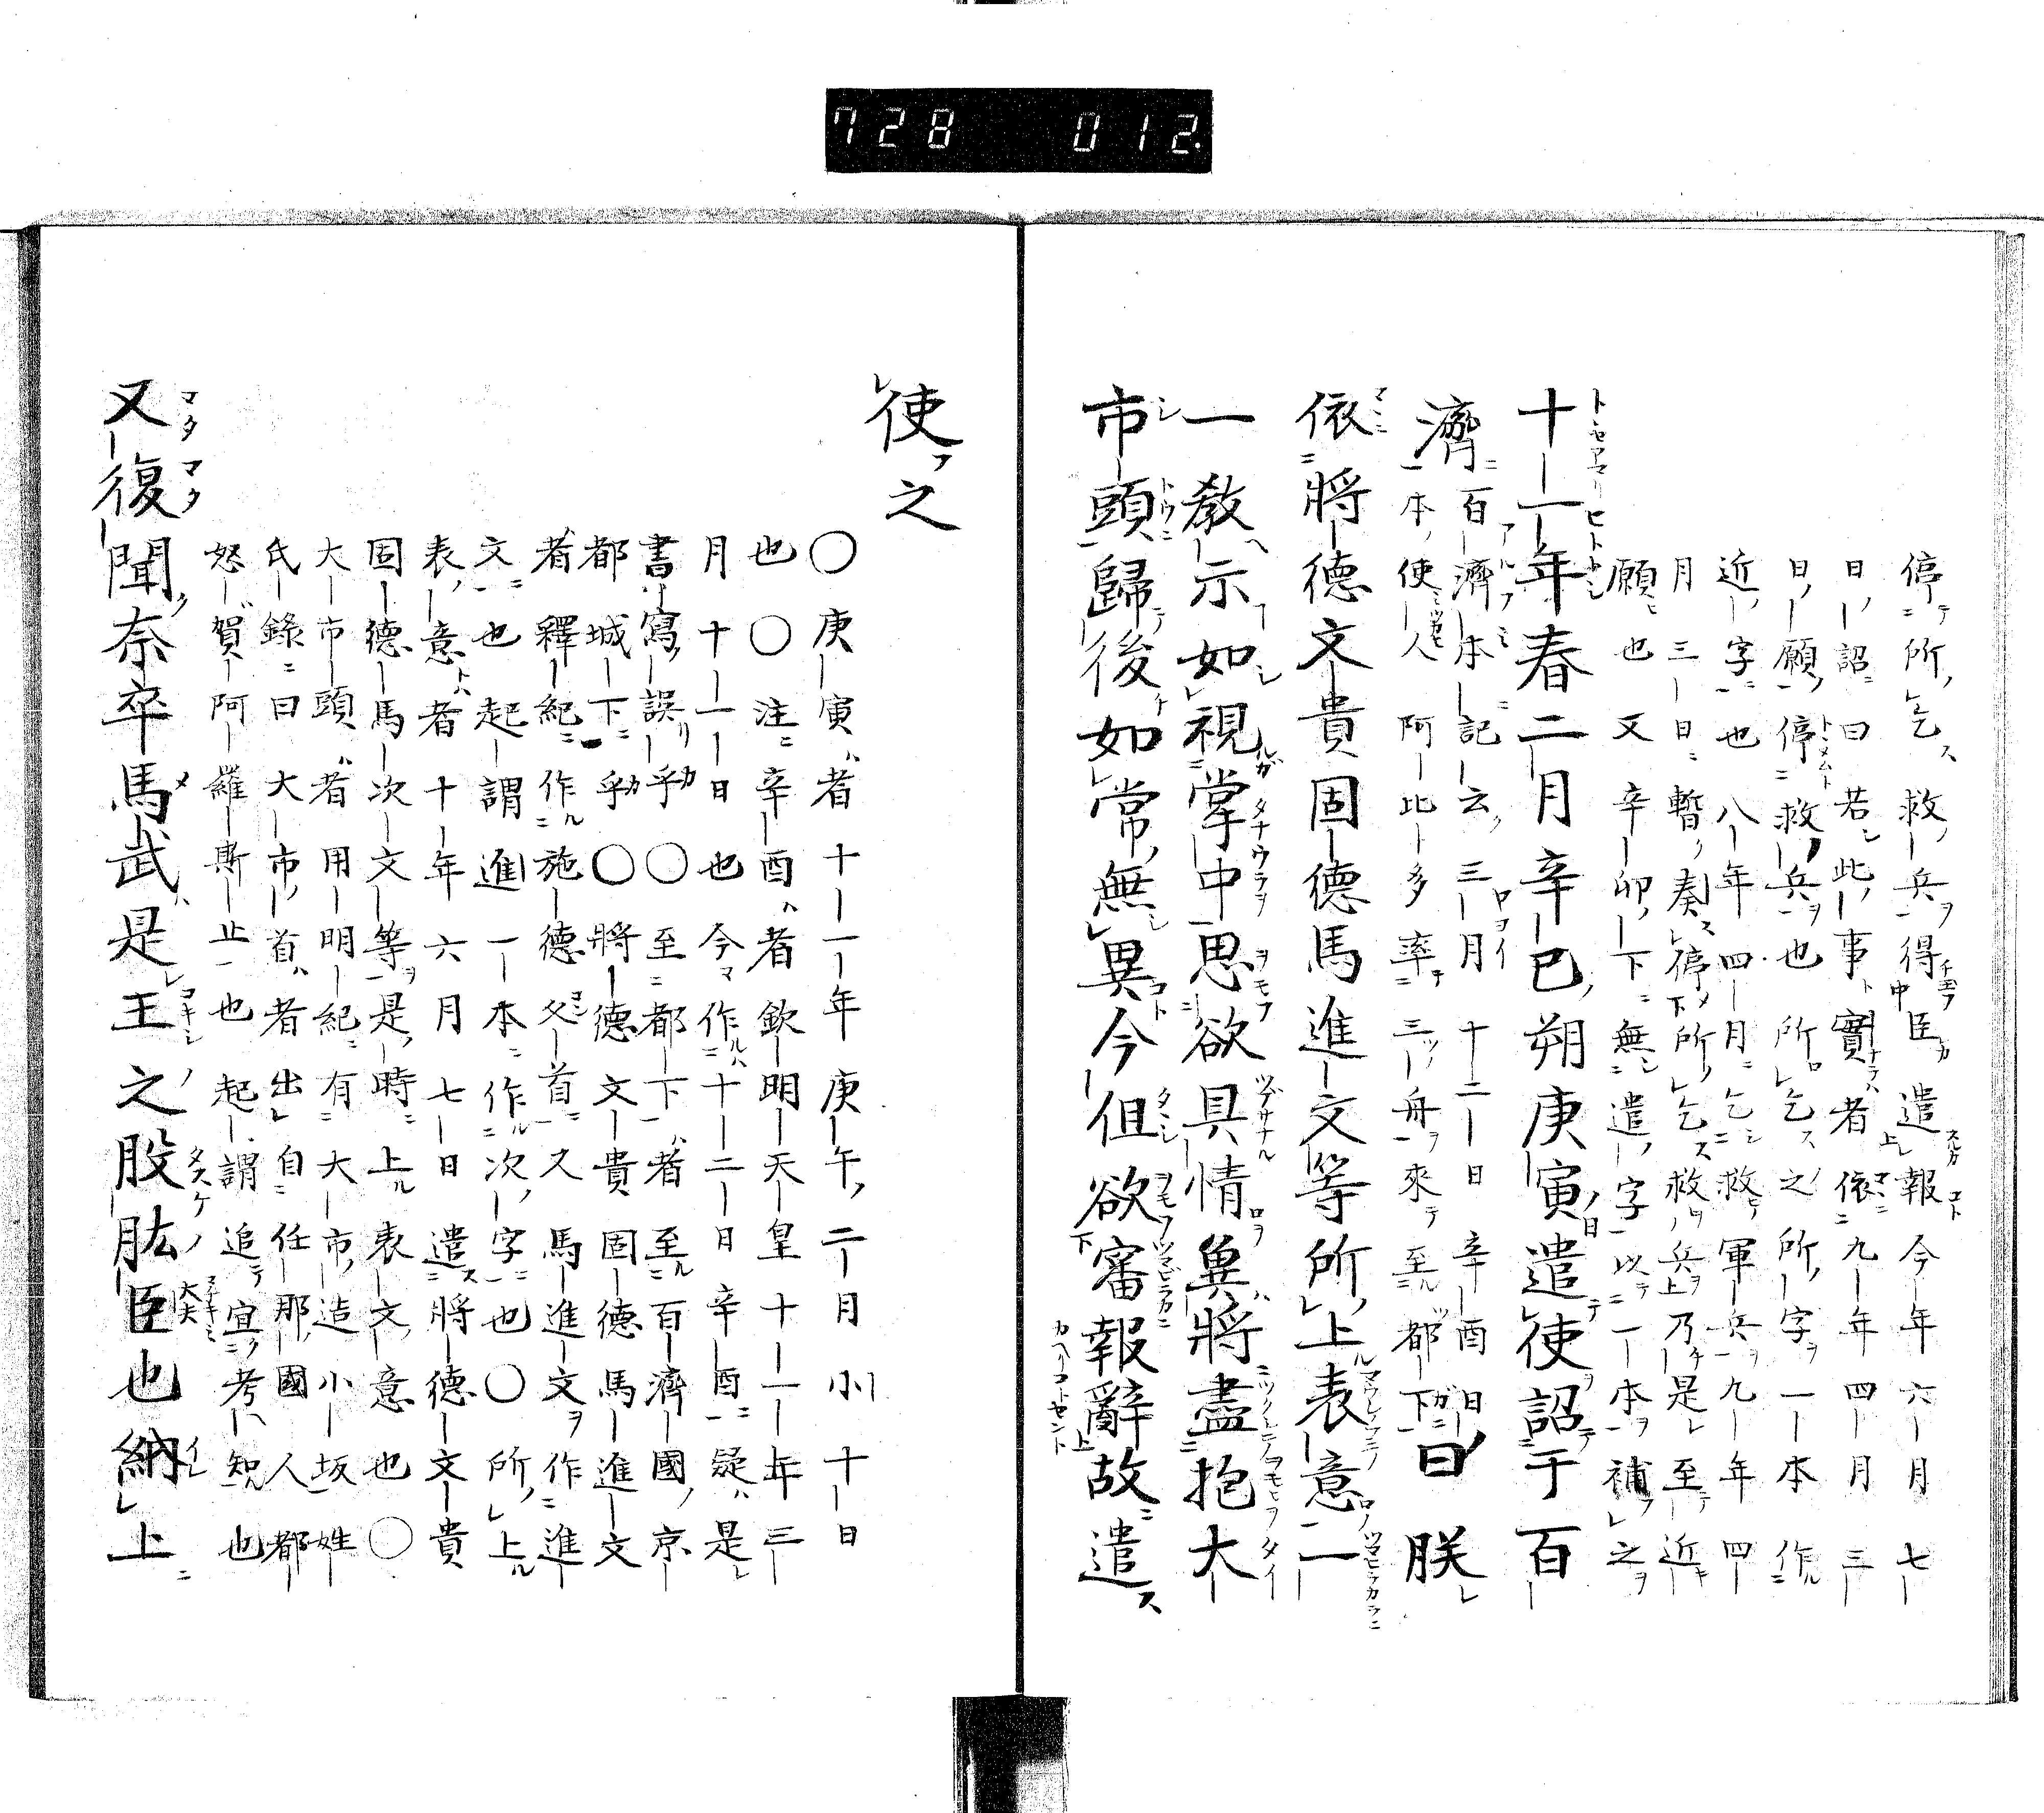 728 012.
停所乞救兵得臣遣報今年六月七
日詔曰若此事實者依九年四月三
日願停救兵也所乞之所字一本作
近字也八年四月乞救軍兵九年四
月三日暫奏停所乞救兵乃是至近
願也又辛卯下無遣字以一本補之
十一年春二月辛巳朔庚寅遣使詔于百
濟百濟本記云三月十二日辛酉日
本使人阿比多率三舟來至都下曰朕
依將德文貴固德馬進文等所上表意一
一教示如視掌中思欲具情冀將盡抱大
市頭歸後如常無異今但欲審報辭故遣
使之
〇庚寅者十一年庚午二月小十日
也〇注辛酉者欽明天皇十一年三
月十一日也今作十二日辛酉疑是
書寫誤乎〇至都下者至百濟國京
都城下乎〇將德文貴固德馬進文
者釋紀作施德久首又馬進文作進
文也起謂進一本作次字也〇所上
表意者十年六月七日遣將德文貴
固德馬次文等是時上表文意也〇
大市頭者用明紀有大市造小坂姓
氏錄曰大市首者出自任那國人都
怒賀阿羅斯止也起謂追宜考知也
又復聞奈卒馬武是王之股肱臣也納上